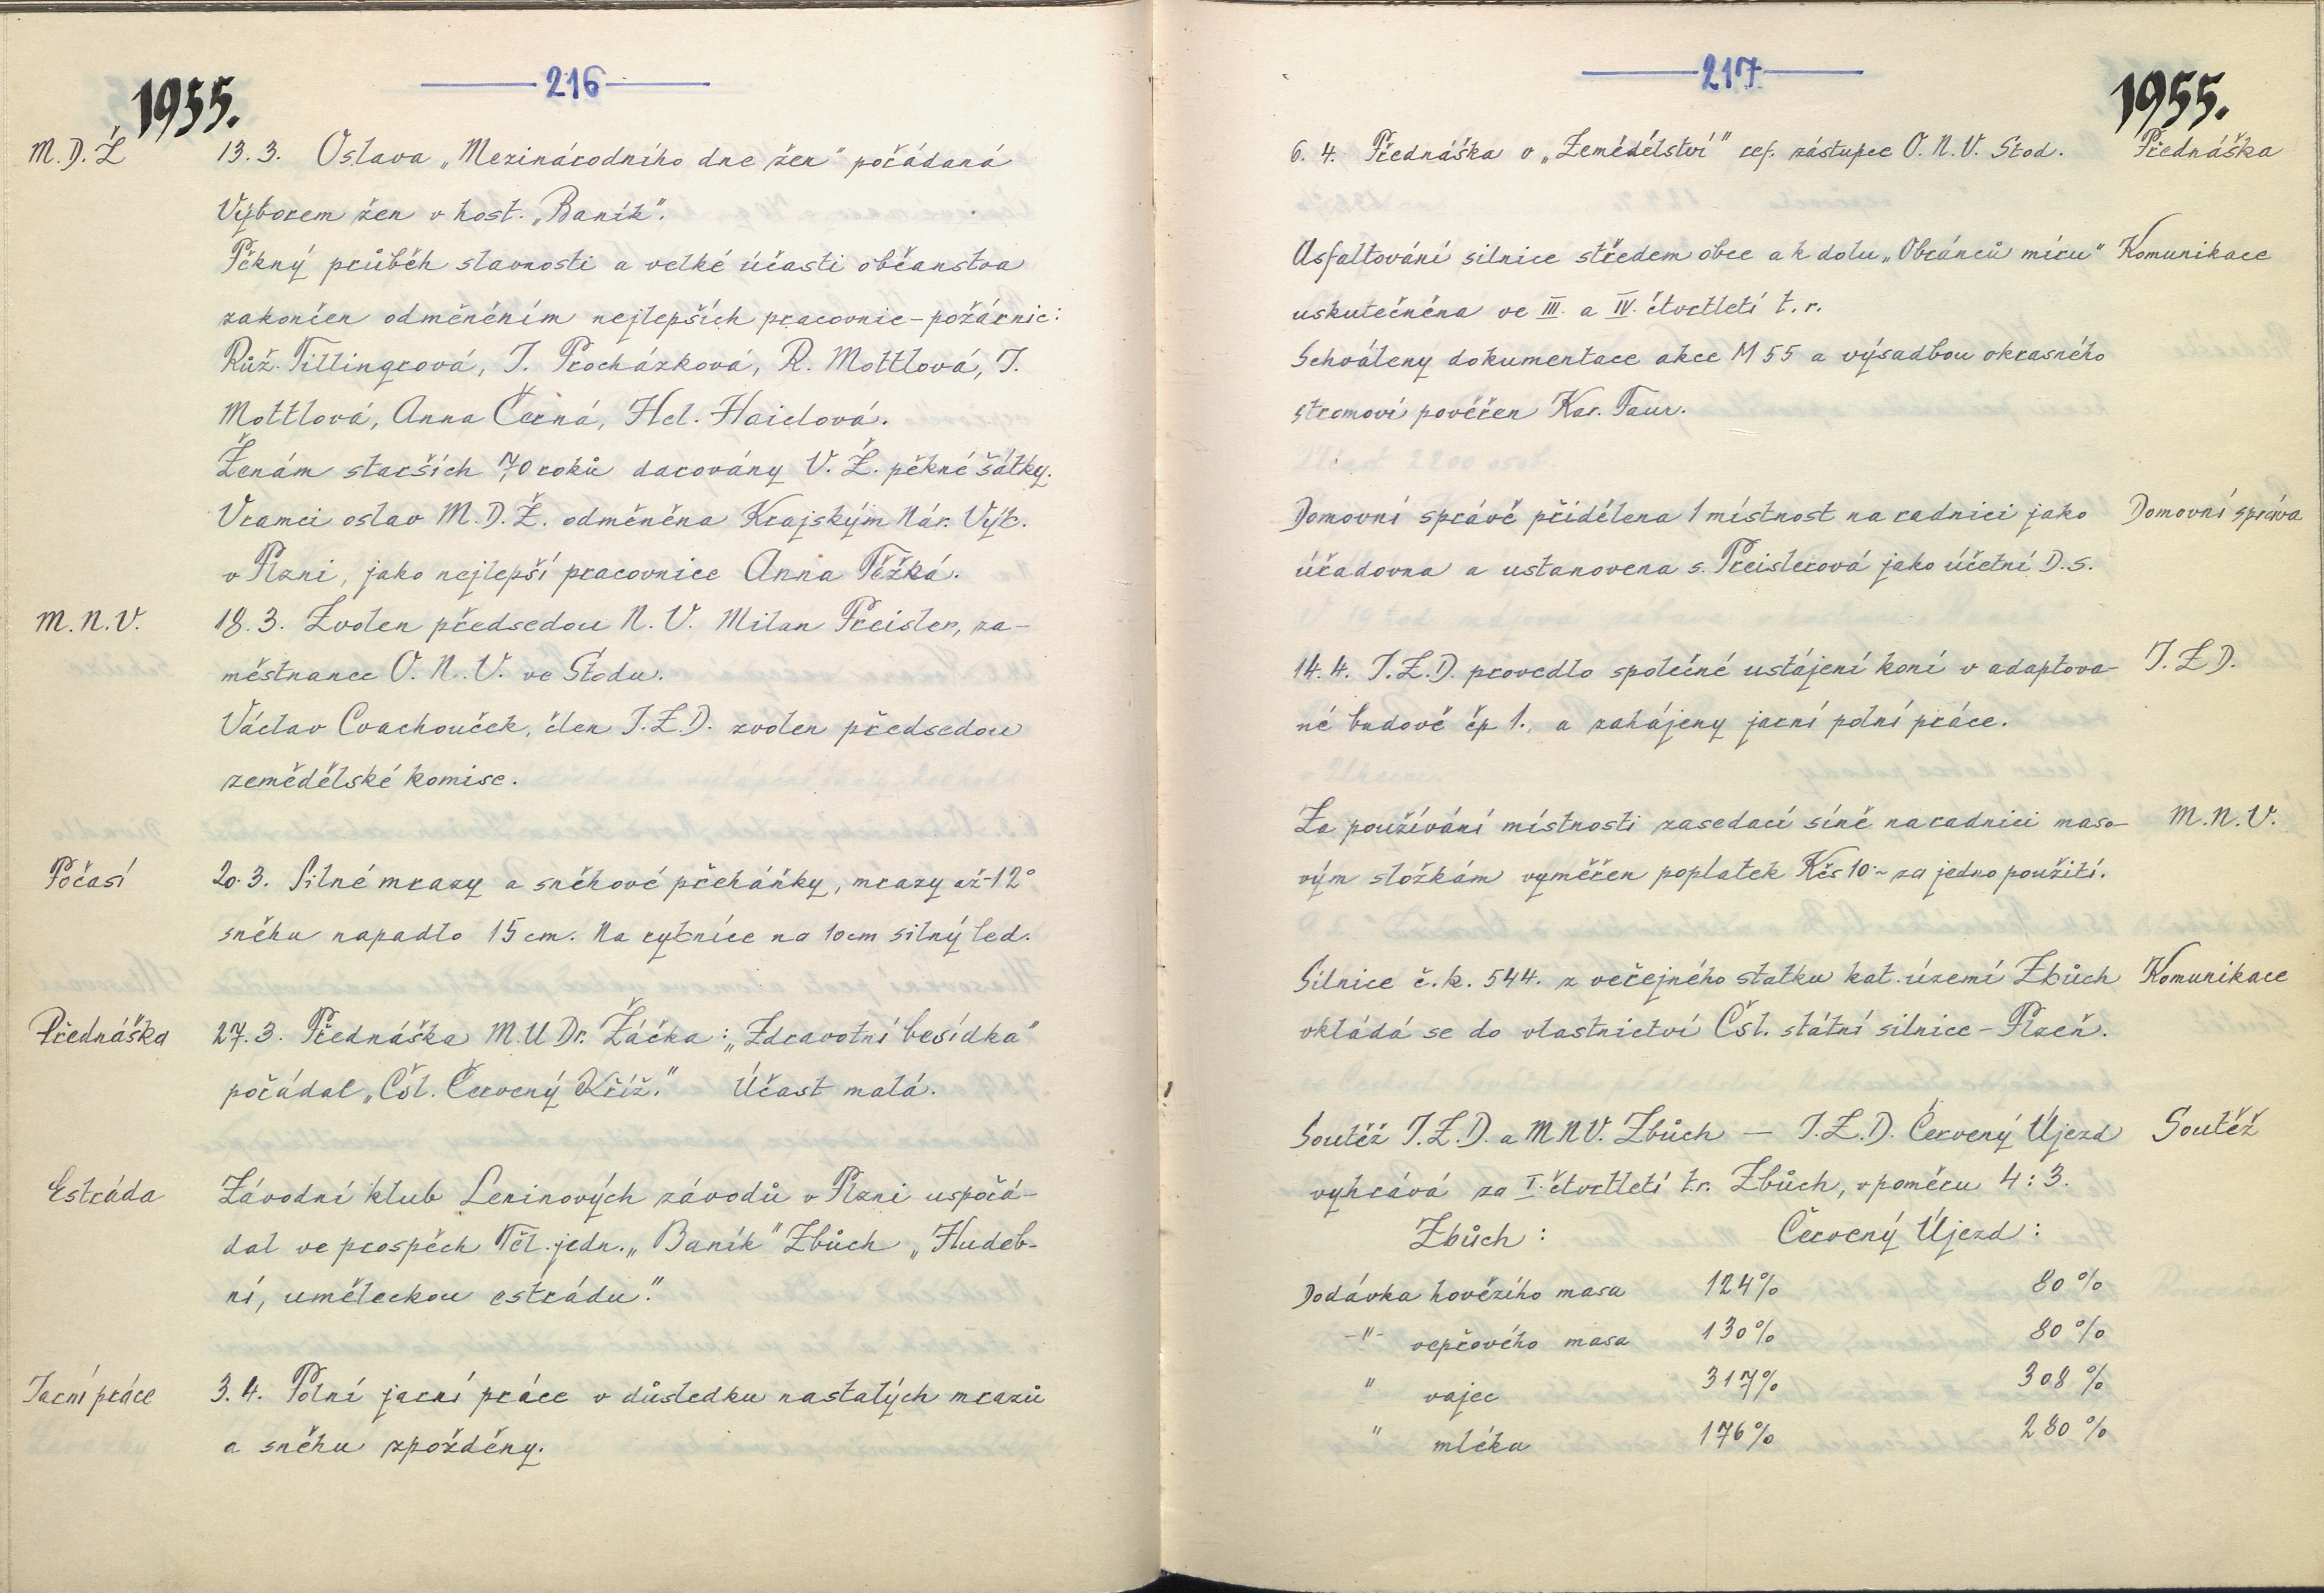 216
1955.
M.D.Ž 13.3. Oslava „Mezinárodního dne žen" pořádaná
Výborem žen v host. „Baník".
Pěkný průběh slavnosti a velké účasti občanstva
zakončen odměněním nejlepších pracovnic-požárnic:
Růž. Tillingrová, J. Procházková, R. Mottlová, J.
Mottlová, Anna Černá, Hel. Haidlová.
Ženám starších 70 roků darovány V.Ž. pěkné šátky.
V rámci oslav M.D.Ž. odměněna Krajským Nár. Výb.
v Plzni, jako nejlepší pracovnice Anna Těžká.
M.N.V. 18.3. Zvolen předsedou N.V. Milan Preisler, za-
městnanec O.N.V. ve Stodu.
Václav Cvachouček, člen J.Z.D. zvolen předsedou
zemědělské komise.
Počasí 20.3. Silné mrazy a sněhové přeháňky, mrazy až -12°
sněhu napadlo 15 cm. Na rybníce na 10 cm silný led.
Přednáška 27.3. Přednáška M.U Dr. Žáčka: „Zdravotní besídka"
pořádal „Čsl. Červený Kříž." Účast malá.
Estráda Závodní klub Leninových závodů v Plzni uspořá-
dal ve prospěch Těl. jedn. „Baník" Zbůch „Hudeb-
ní, uměleckou estrádu."
Jarní práce 3.4. Polní jarní práce v důsledku nastalých mrazů
a sněhu zpožděny.
217
1955.
6.4. Přednáška o „Zemědělství" ref. zástupce O.N.V. Stod. Přednáška
Asfaltování silnice středem obce a k dolu „Obránců míru" Komunikace
uskutečněna ve III. a IV. čtvrtletí t.r.
Schváleny dokumentace akce M 55 a výsadbou okrasného
stromoví pověřen Kar. Taur.
Domovní správě přidělena 1 místnost na radnici jako Domovní správa
úřadovna a ustanovena s. Preislerová jako účetní D.s.
14.4. J.Z.D. provedlo společné ustájení koní v adaptova- J.Z.D.
né budově čp 1., a zahájeny jarní polní práce.
Za používání místnosti zasedací síně na radnici maso- M.N.V.
vým složkám vyměřen poplatek Kčs 10.- za jedno použití.
Silnice č.k. 544. z veřejného statku kat. území Zbůch Komunikace
vkládá se do vlastnictví Čsl. státní silnice - Plzeň.
Soutěž J.Z.D. a MNV. Zbůch — J.Z.D. Červený Újezd Soutěž
vyhrává za I. čtvrtletí t.r. Zbůch, v poměru 4:3.
Zbůch: Červený Újezd:
Dodávka hovězího masa 124% 80%
-"- vepřového masa 130% 80%
" vajec 317% 308%
" mléka 176% 280%